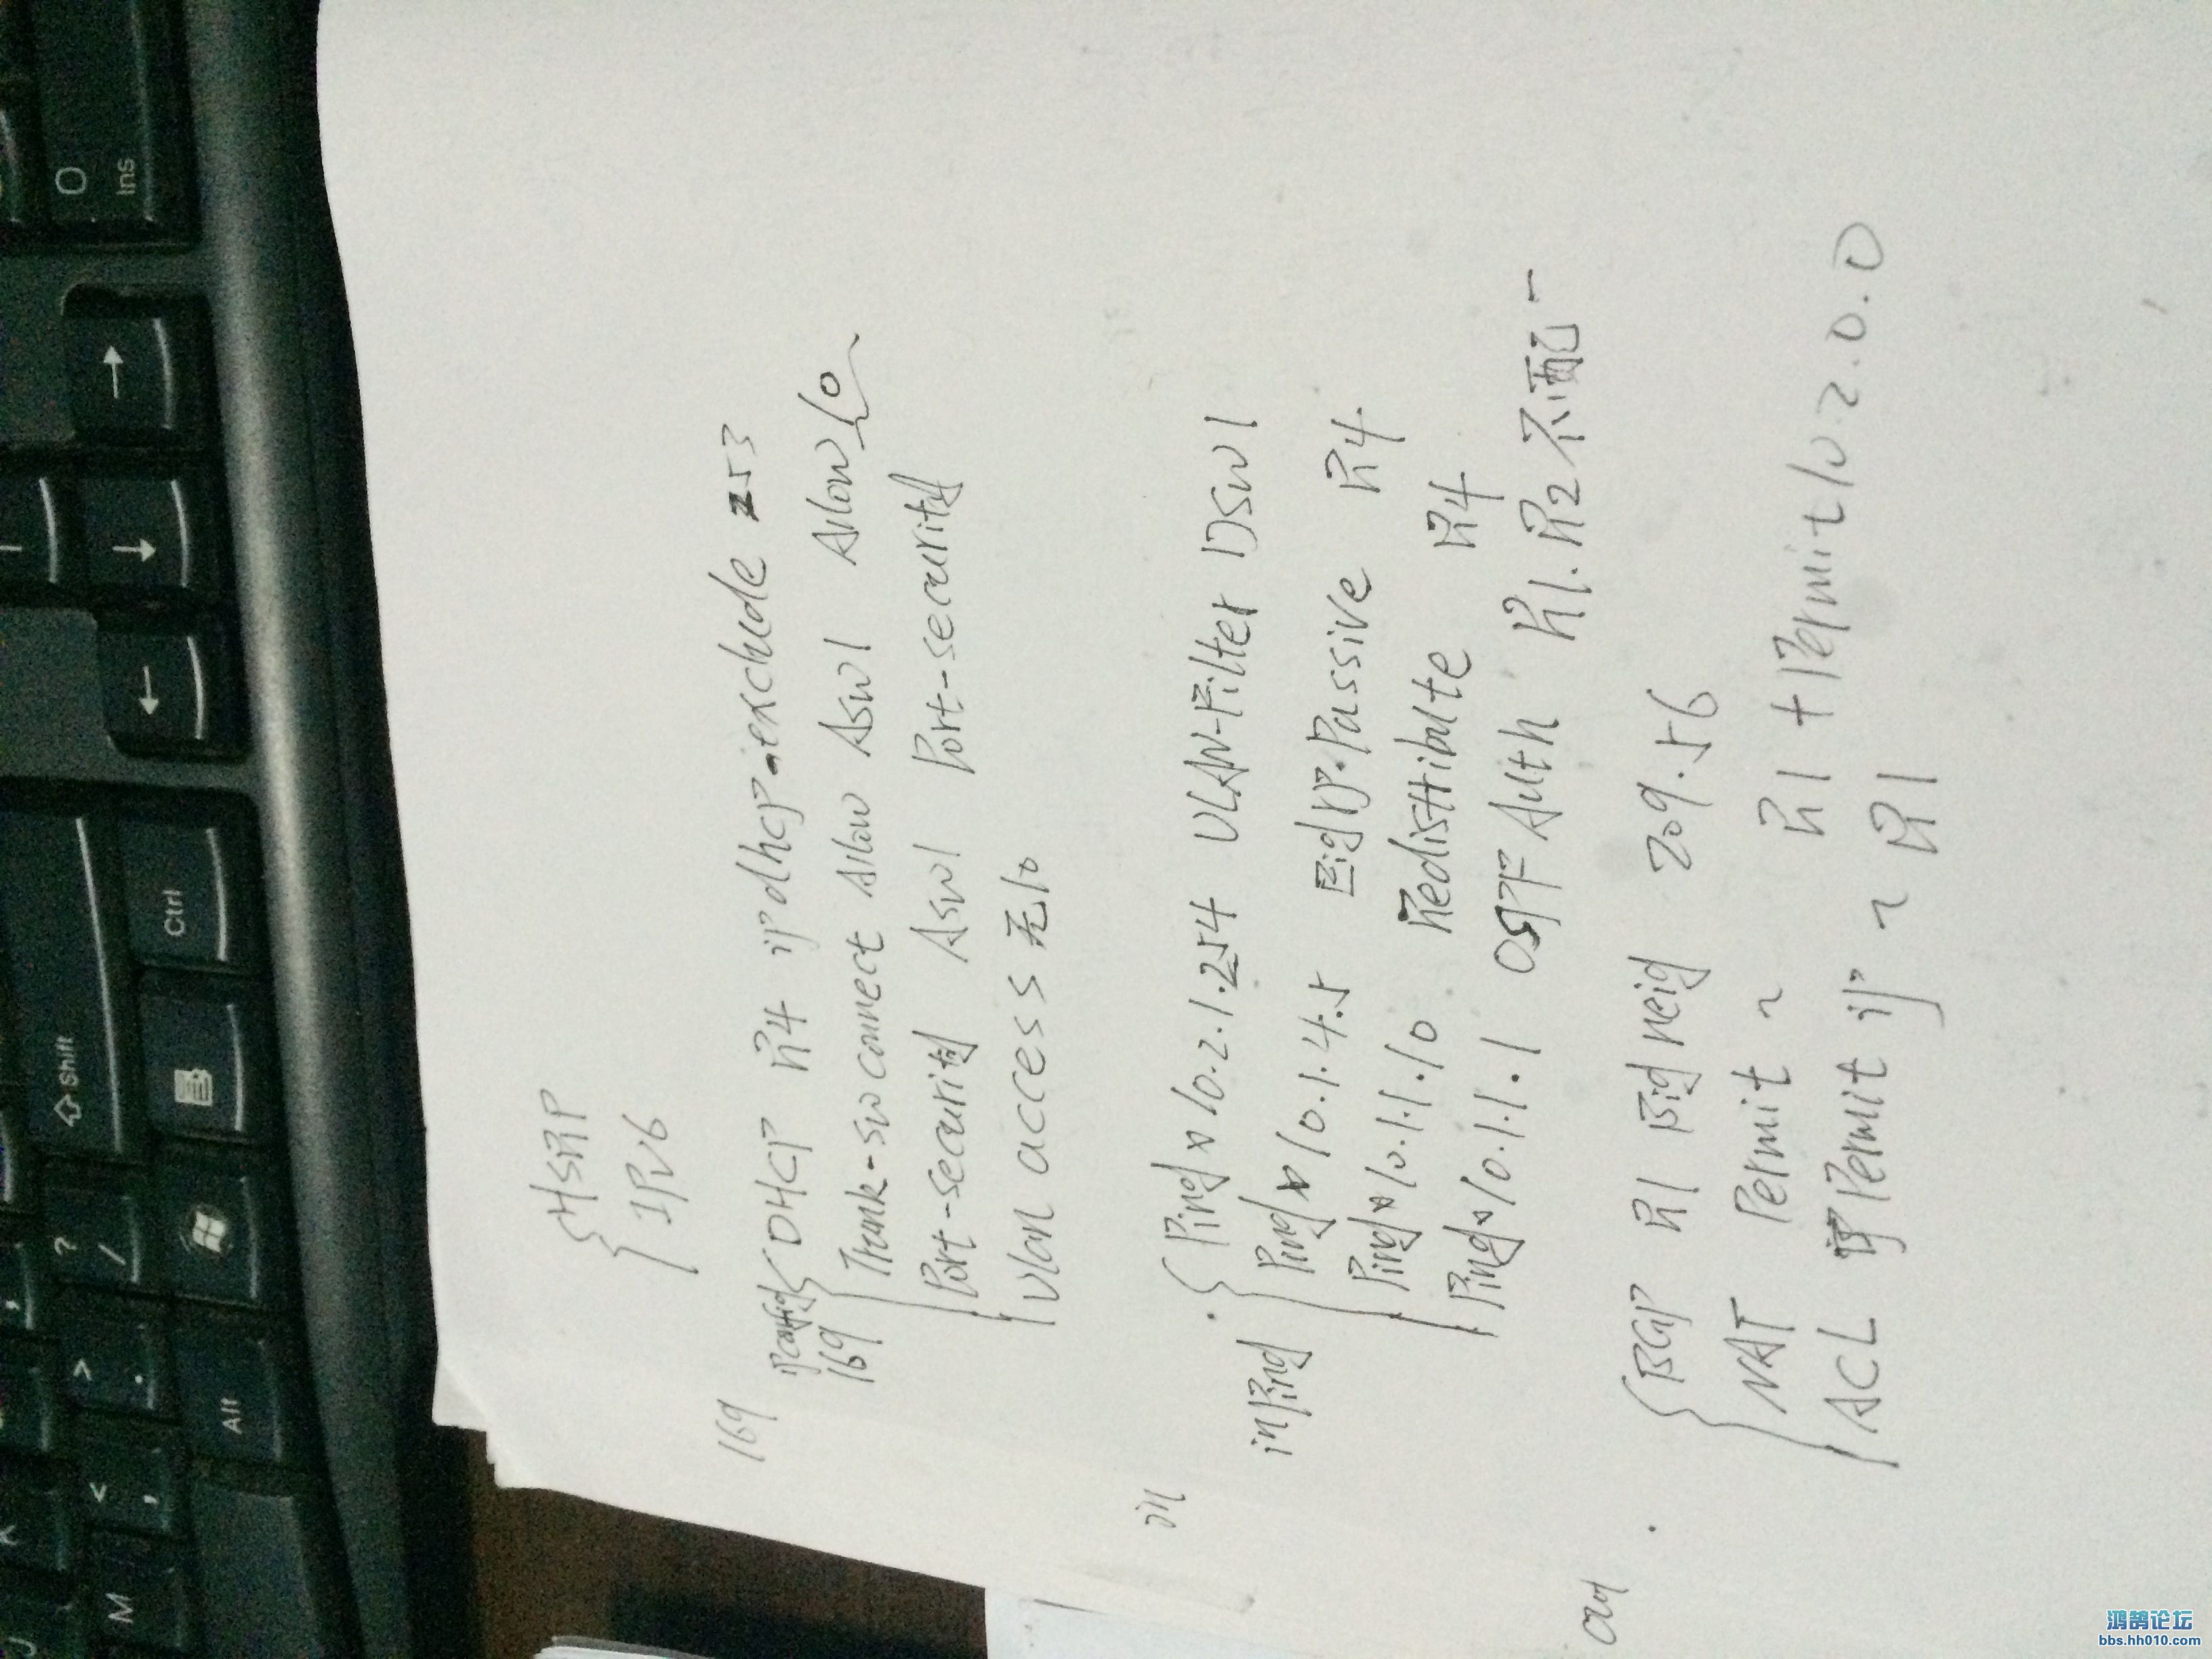 HSRP
IPv6
169
ipconfig DHCP R4 ip dhcp-exclude 253
169 Trunk-sw connect Allow ASW1 Allow 10
Port-security ASW1 Port-security
Vlan access 无10
in
Ping x 10.2.1.254 VLAN-Filter DSW1
in Ping Ping x 10.1.4.5 Eigrp.Passive R4
Ping x 10.1.1.10 Redistribute R4
Ping x 10.1.1.1 OSPF Auth R1.R2不配一
out
BGP R1 neig 209.56
NAT Permit ~ R1 + Permit 10.2.0.0
ACL Permit ip ~ R1
O
Ins
→
↓
←
Ctrl
Shift
?
/
>
.
<
,
Alt
M
鸿鹄论坛
bbs.hh010.com